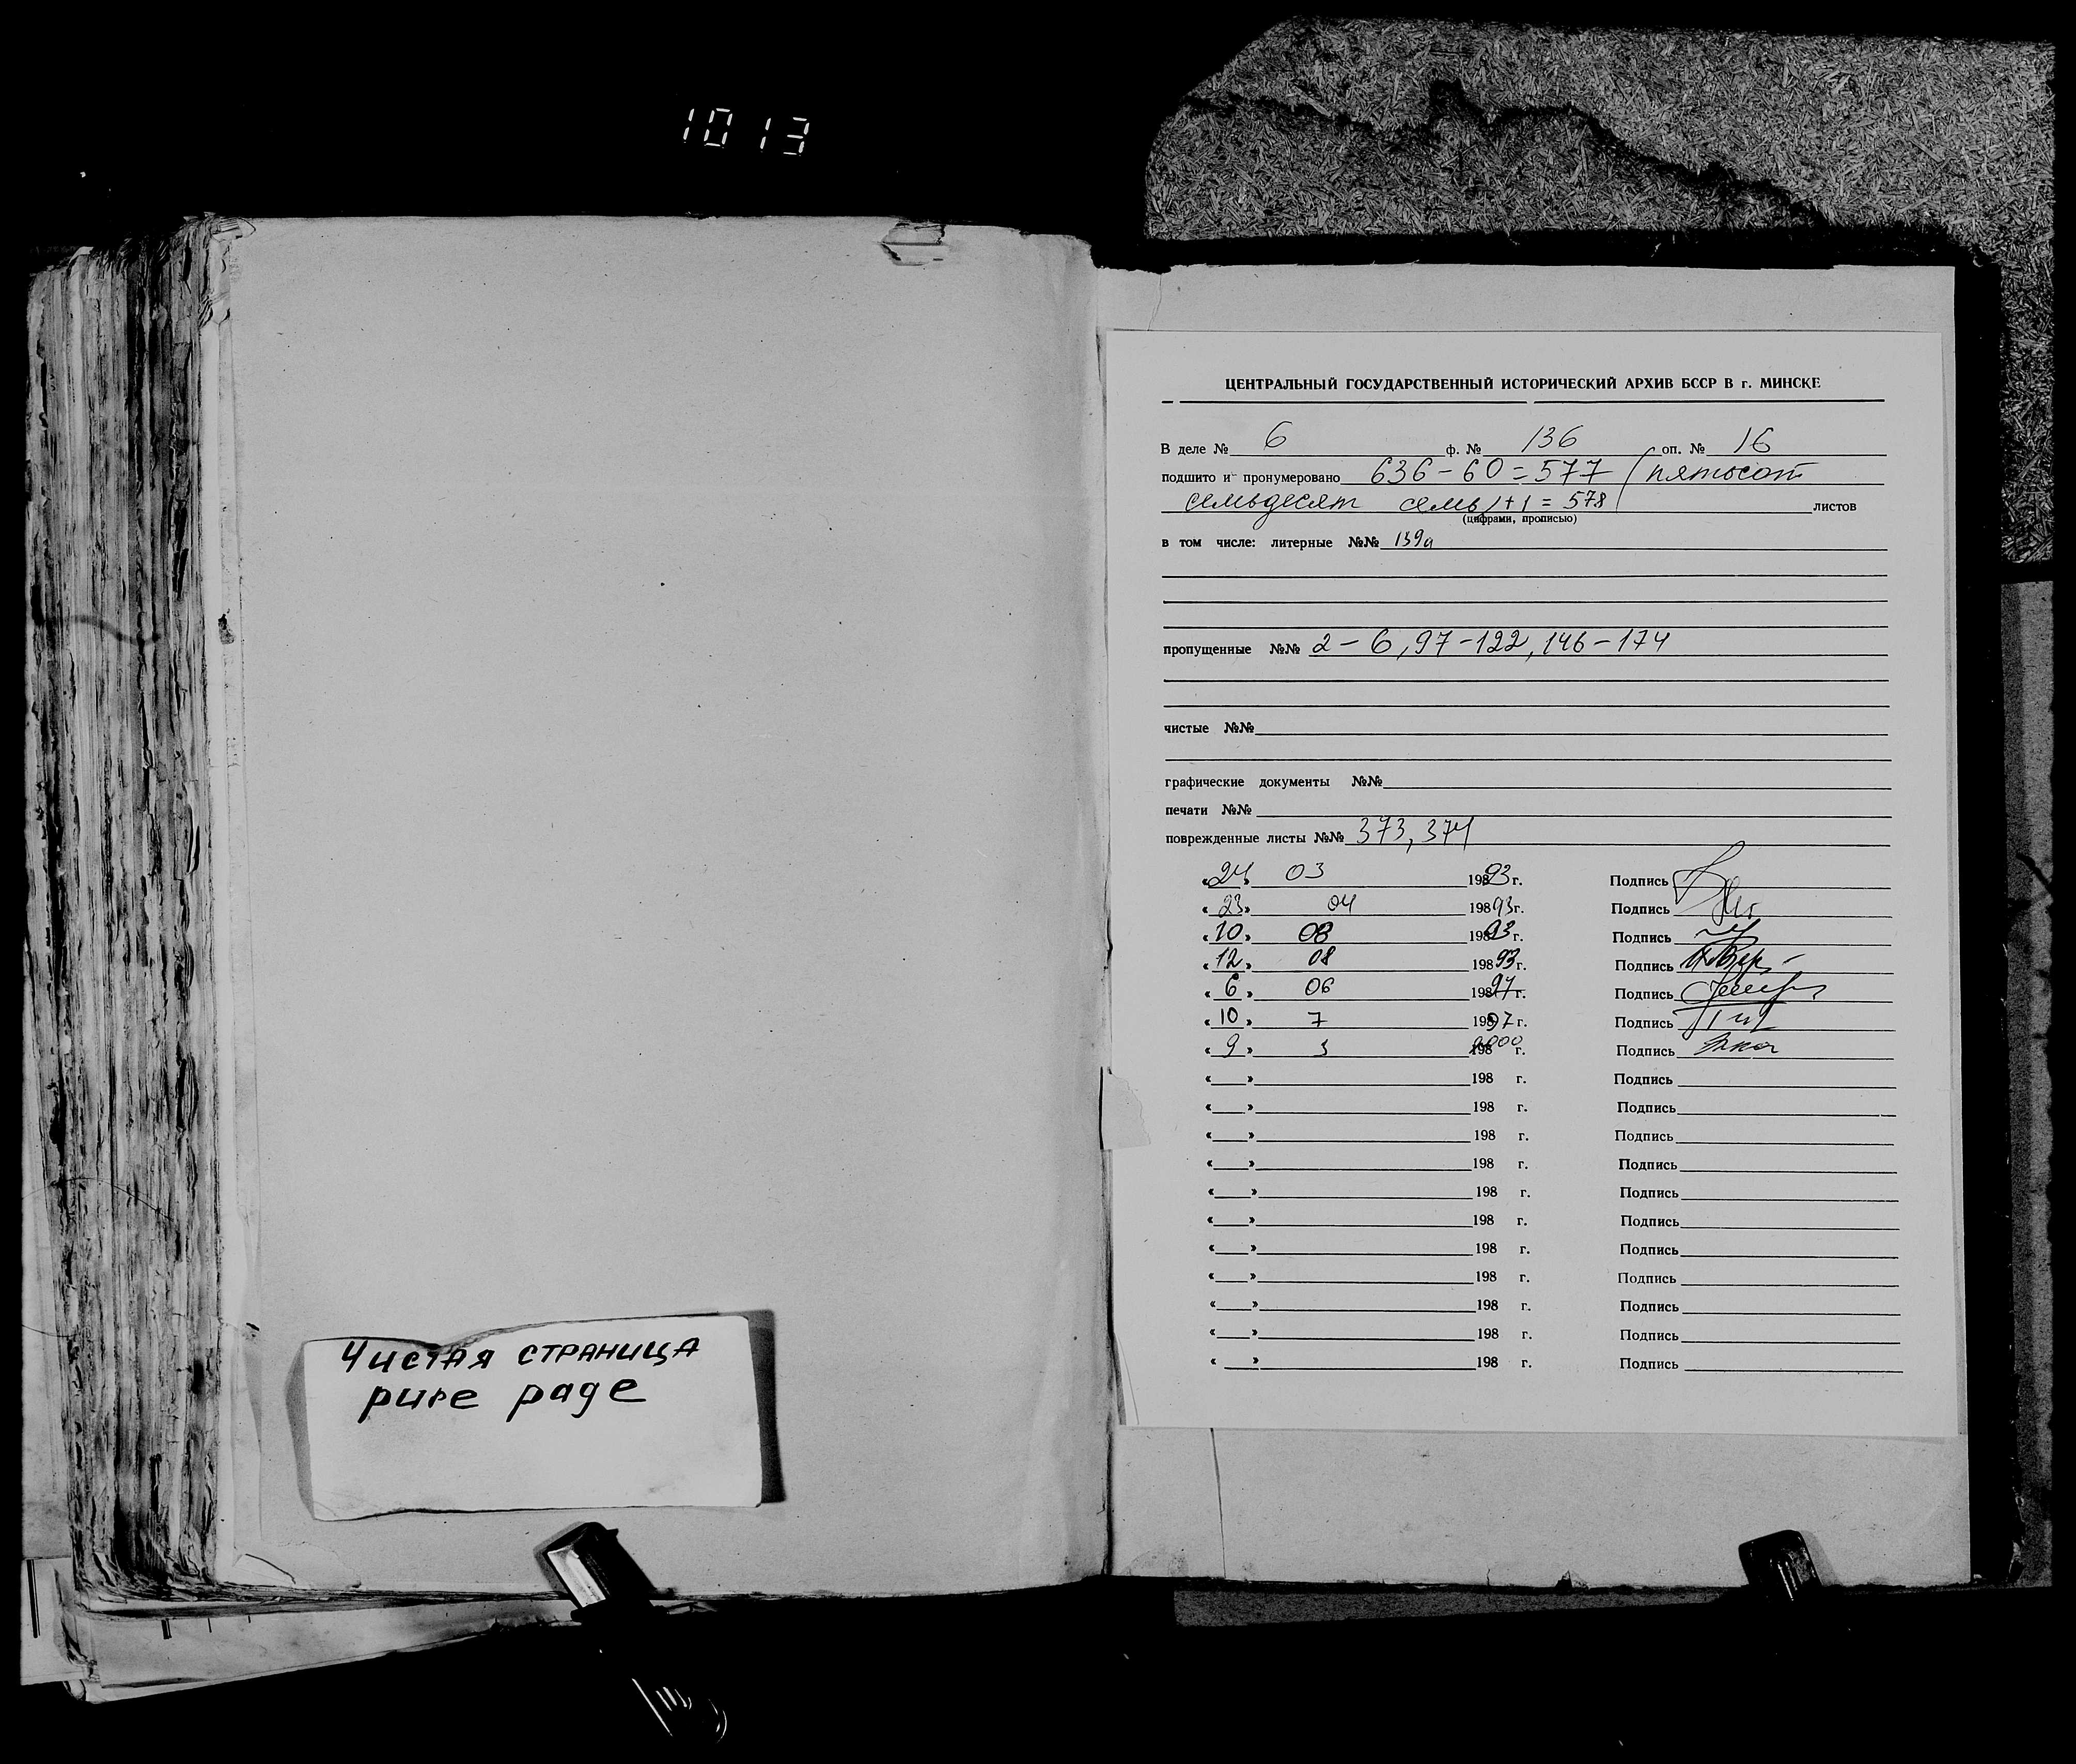 1013
Чистая страница
pure page
ЦЕНТРАЛЬНЫЙ ГОСУДАРСТВЕННЫЙ ИСТОРИЧЕСКИЙ АРХИВ БССР В г. МИНСКЕ
В деле № 6 ф. № 136 оп. № 16
подшито и пронумеровано 636-60=577 (пятьсот
семьдесят семь)+1=578 листов
(цифрами, прописью)
в том числе: литерные №№ 139а
пропущенные №№ 2-6, 97-122, 146-174
чистые №№
графические документы №№
печати №№
поврежденные листы №№ 373, 374
«24» 03 19893г. Подпись
«23» 04 19893г. Подпись
«10» 08 19893г. Подпись
«12» 08 19893г. Подпись
«6» 06 19897г. Подпись
«10» 7 19897г. Подпись
«9» 3 1982000г. Подпись
« » 198 г. Подпись
« » 198 г. Подпись
« » 198 г. Подпись
« » 198 г. Подпись
« » 198 г. Подпись
« » 198 г. Подпись
« » 198 г. Подпись
« » 198 г. Подпись
« » 198 г. Подпись
« » 198 г. Подпись
« » 198 г. Подпись